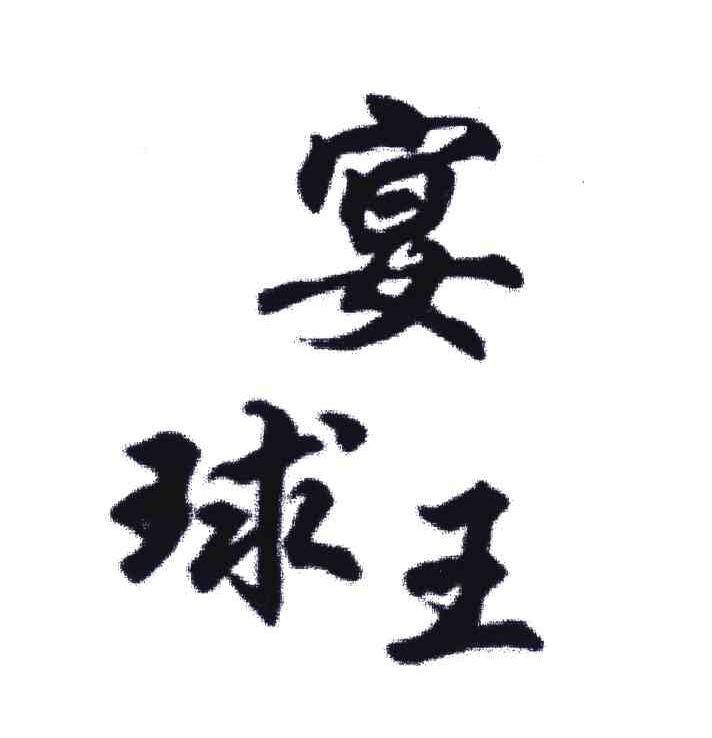 宴
球王